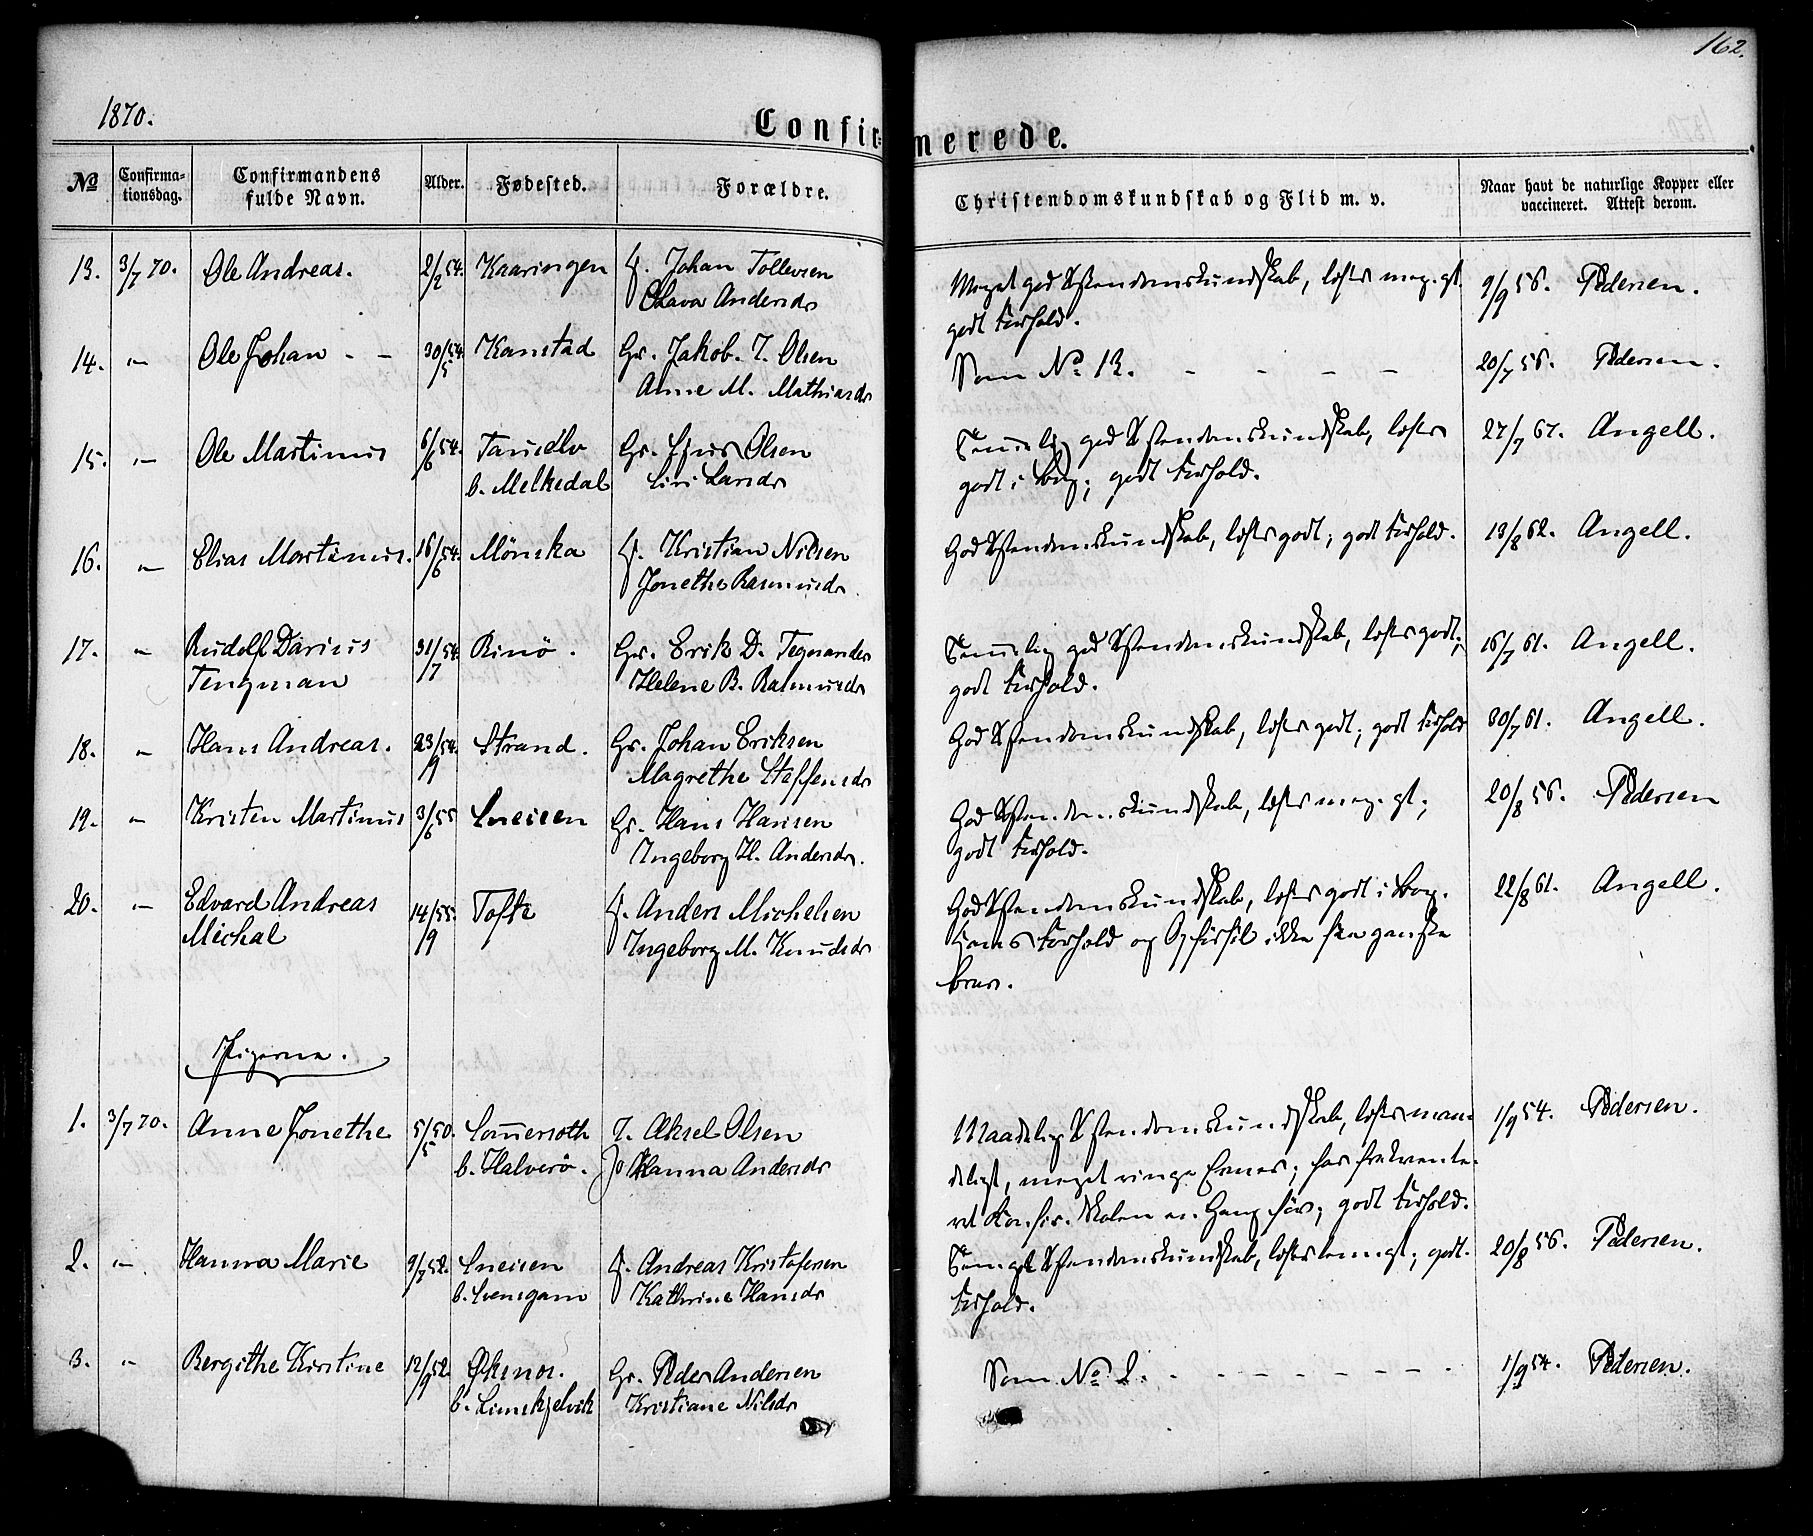 162.
1870.
Confirmerede.
No
Confirmationsdag.
Confirmandens fulde Navn.
Alder.
Fødested.
Forældre.
Christendomskundskab og Flid m. v.
Naar havt de naturlige Kopper eller vaccineret. Attest derom.
13. 3/7 70. Ole Andreas. 2/2 54. Kaaringen Johan Tollevsen Meget god Kristendomskundskab, læser meg. gt. 9/9 56. Pedersen.
Andersdr godt Forhold.
14. -"- Ole Johan - - 30/5 54 Kanstad Gr. Jakob. J. Olsen Som No 13. - - - - 20/7 56. Pedersen.
Anne M. Mathiasdr
15. -"- Ole Martinus 6/6 54. Gr. Olsen Temmelig god Kristendomskundskab, læser 27/7 67. Angell.
b. Melkedal Siri Larsdr godt i Bog; godt Forhold.
16. " Elias Martinus. 16/6 54. Mönska Kristian Nilsen God Kristendomskundskab, læser godt; godt Forhold. 13/8 62. Angell.
Jonethe Rasmusdr
17. " Rudolf Darius 31/7 54. Rinö. Gr. Erik D. Tegmander Temmelig god Kristendomskundskab, læser godt; 16/7 61. Angell.
Tengman Helene B. Rasmusdr godt Forhold.
18. " Hans Andreas. 23/9 54. Strand. Gr. Johan Eriksen God Kristendomskundskab, læser godt; godt Forhold 30/7 61. Angell.
Magrethe Steffensdr
19. " Kristen Martinus 3/6 55 Sneisen Gr. Hans Hansen God Kristendomskundskab, læser meg. gt; 20/8 56. Pedersen
Ingeborg H. Andersdr. godt Forhold.
20. -"- Edvard Andreas 14/9 55. Tofte Anders Michelsen God Kristendomskundskab, læser godt i Bog. 22/8 61. Angell.
Michal Ingeborg M. Knudsdr Hans Forhold og Opførsel ikke saa ganske
brav.
Pigerne.
1. 3/7 70. Anne Jonethe 5/5 50. Sommersæth J. Aksel Olsen Maadelig Kristendomskundskab, læser maa- 1/9 54. Pedersen.
b. Halverö. Hanna Andersdr deligt, meget ringe Evner; har frekvente-
ret Konfir. Skolen en Gang før; godt Forhold.
2. -"- Hanna Marie 9/7 52. Sneisen Andreas Kristofersen Temgl. Kristendomskundskab, læser temgt; godt 20/8 56. Pedersen.
b. Svensgam Kathrine Hansdr Forhold.
3. " Bergithe Kirstine 12/9 52. Øksnes. Gr. Peder Andersen Som No 2. - - - - - - - - 1/9 54. Pedersen.
Kristiane Nilsdr